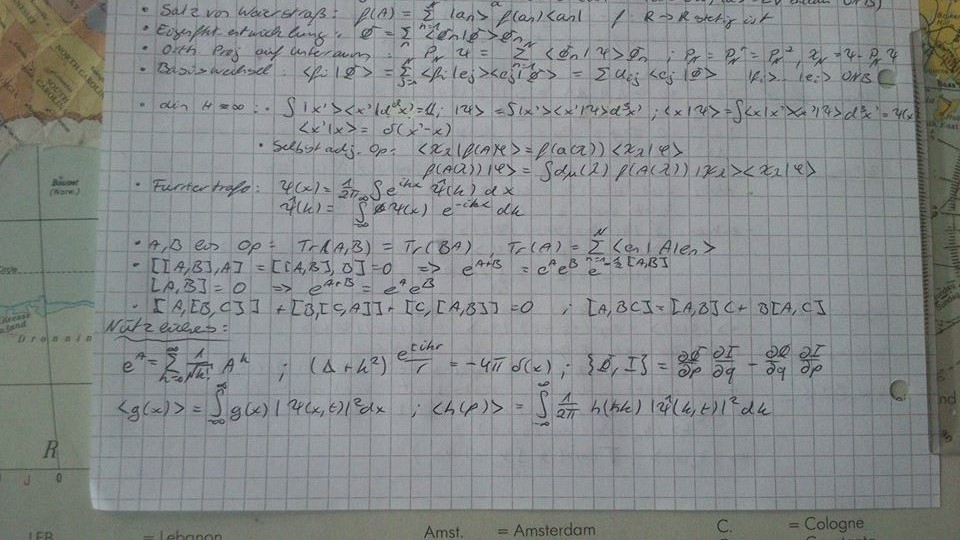 • Satz von Weierstraß: f(A) = Σ |an> f(an) <an| f: R→R stetig ist
• Eigenfkt entwicklung: Φ = Σ <Φn|Φ>Φn
• Orth Proj auf Unterraum: P_N Ψ = Σ <Φn|Ψ>Φn ; P_N = P_N^† = P_N², χ_N = Ψ - P_N Ψ
• Basiswechsel: <fi|Φ> = Σ <fi|ej><ej|Φ> = Σ uij <ej|Φ> |fi>, |ei> ONB
• dim H = ∞: • ∫|x'><x'|d³x' = 1; |Ψ> = ∫|x'><x'|Ψ>d³x' ; <x|Ψ> = ∫<x|x'><x'|Ψ>d³x' = Ψ(x
<x'|x> = δ(x'-x)
• Selbstadj. Op: <χλ|f(A)φ> = f(a(λ)) <χλ|φ>
f(A(λ))|φ> = ∫dμ(λ) f(A(λ)) |χλ><χλ|φ>
• Furriertrafo: Ψ(x) = 1/2π ∫ e^{ikx} Ψ̂(k) dx
Ψ̂(k) = ∫_{-∞}^{∞} Ψ(x) e^{-ikx} dk
• A,B lin Op: Tr(A,B) = Tr(BA) Tr(A) = Σ_{n=1}^{N} <en|A|en>
• [[A,B],A] = [[A,B],B] = 0 => e^{A+B} = e^A e^B e^{-½[A,B]}
[A,B] = 0 => e^{A+B} = e^A e^B
• [A,[B,C]] + [B,[C,A]] + [C,[A,B]] = 0 ; [A,BC] = [A,B]C + B[A,C]
Nützliches:
e^A = Σ_{k=0}^{∞} 1/k! A^k ; (Δ+k²) e^{±ikr}/r = -4π δ(x) ; {Φ, I} = ∂Φ/∂p ∂I/∂q - ∂Φ/∂q ∂I/∂p
<g(x)> = ∫_{-∞}^{∞} g(x) |Ψ(x,t)|² dx ; <h(p)> = ∫_{-∞}^{∞} 1/2π h(ħk) |Ψ̂(k,t)|² dk
R
J O
NORTH CAROLINA
= Lebanon
Amst. = Amsterdam
C. = Cologne